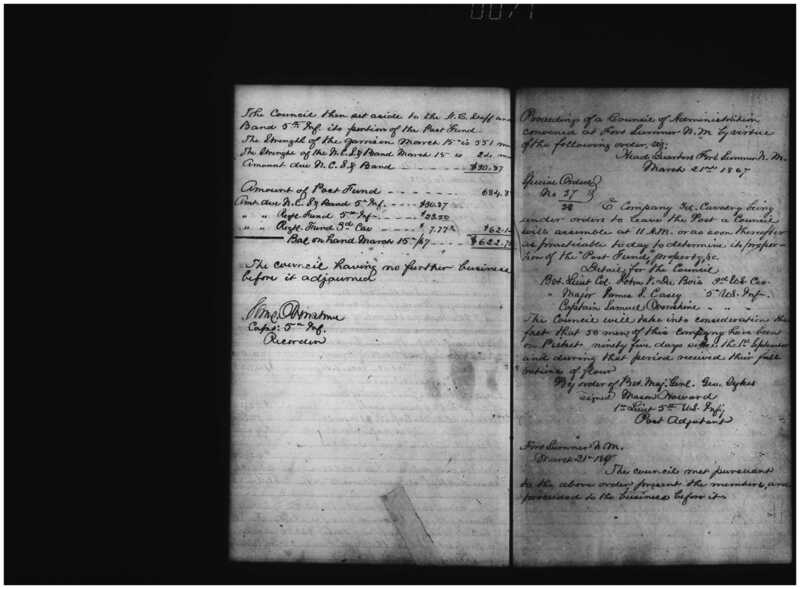 0071
The Council then set aside to the N.C. Staff and
Band 5th Inf. its portion of the Post Fund.
The Strength of the Garrison March 15th is 551 m
The Strength of the N.C.S & Band March 15 is
Amount due N.C.S & Band $30.37
Amount of Post Fund 684.8
Amt due N.C.S & Band 5th Inf. $30.37
" " Regtl Fund 5th Inf.
" " Regtl. Fund 3rd Cav 7.77 $62.1
Bal on hand March 15th/67 $622.7
The council having no further business
before it adjourned
Capt. 5th Inf.
Recorder
Proceedings of a Council of Administration
convened at Fort Sumner N.M by virtue
of the following order, viz;
Head Quarters Fort Sumner N.M.
March 21st 1867
Special Orders
No 37
38
Company being
under orders to leave the Post a Council
will assemble at 11 A.M. or as soon thereafter
as practicable today to determine its propor-
tion of the Post Fund, property, &c.
Detail for the Council
Bvt. Lieut Col. John V. Du Bois 3rd U.S. Cav.
" Major James S. Casey 5th U.S. Inf.
Captain Samuel Ovenshine " "
The Council will take into consideration the
fact that 50 men of this company have been
on Picket ninety five days since the 1st September
and during that period received their full
rations of flour
By order of Bvt. Maj. Genl. Geo. Sykes
signed Mason Howard
1st Lieut 5th U.S. Inf;
Post Adjutant
Fort Sumner N.M.
March 21st 1867
The council met pursuant
to the above order, present the members, and
proceeded to the business before it.